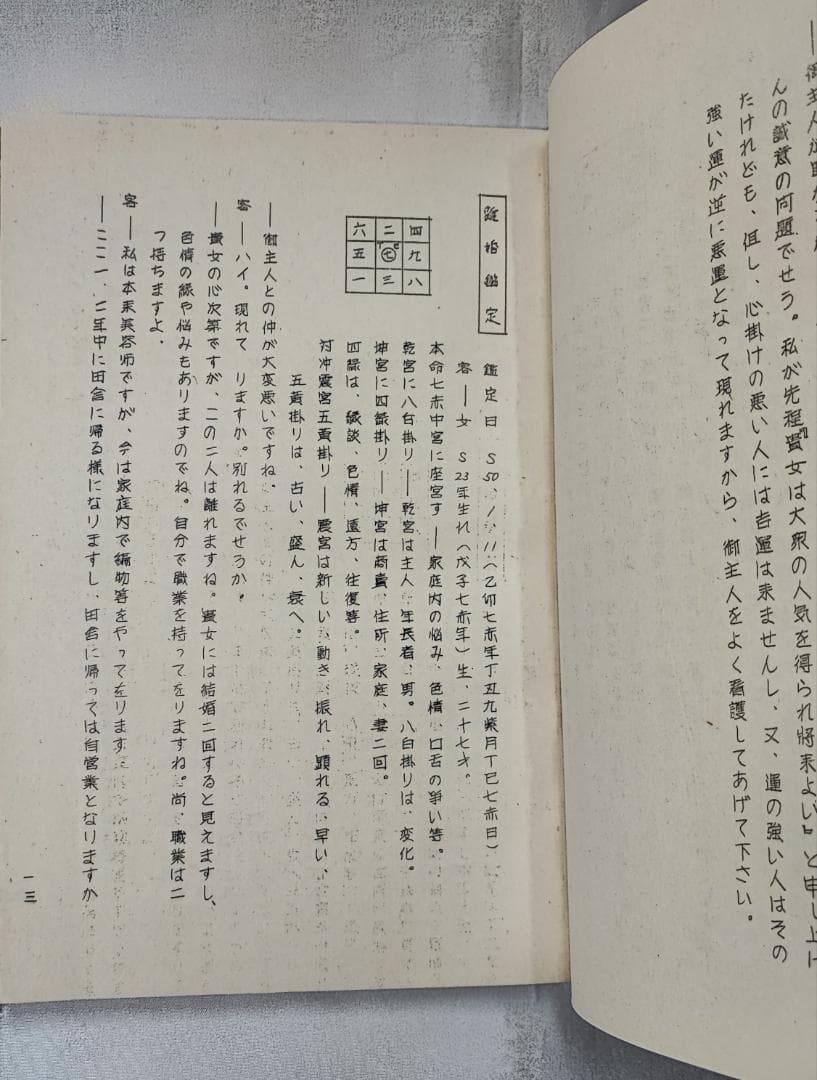 んの誠意の問題でせう。私が先程『貴女は大衆の人気を得られ将来よい』と申し上げ
たけれども、但し、心掛けの悪い人には吉運は来ませんし、又、運の強い人はその
強い運が逆に悪運となって現れますから、御主人をよく看護してあげて下さい。
離婚鑑定
六二四
五七九
一三八
鑑定日 S50、1、11(乙卯七赤年丁丑九紫月丁巳七赤日)
客―女 S23年生れ(戊子七赤年)生、二十七才。
本命七赤中宮に座宮す―家庭内の悩み、色情、口舌の争い等。
乾宮に八白掛り―乾宮は主人、年長者、男。八白掛りは、変化。
坤宮に四緑掛り―坤宮は商賣、住所、家庭、妻二回。
四緑は、縁談、色情、遠方、往復等。
対冲震宮五黄掛り―震宮は新しい、動き、振れ、顕れる、早い、
五黄掛りは、古い、盛ん、衰へ。
―御主人との仲が大変悪いですね。
客―ハイ。現れて りますか。別れるでせうか。
―貴女の心次第ですが、この二人は離れますね。貴女には結婚二回すると見えますし、
色情の縁や悩みもありますのでね。自分で職業を持ってをりますね。尚、職業は二
つ持ちますよ、
客―私は本来美容師ですが、今は家庭内で編物等をやってをります
―ここ一、二年中に田舎に帰る様になりますし、田舎に帰っては自営業となりますか
一三